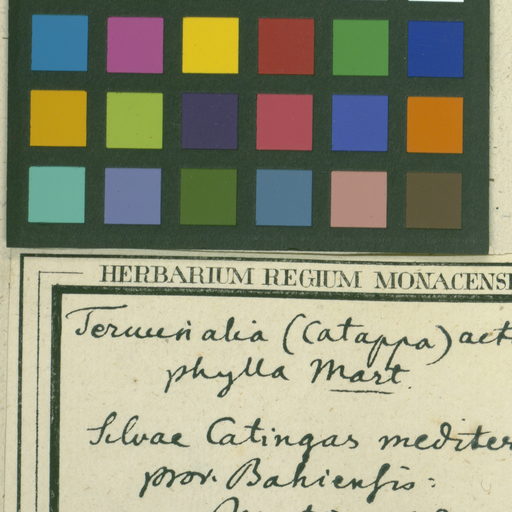 HERBARIUM REGIUM MONACENS
Terminalia (Catappa) act
phylla Mart.
Silvae Catingas mediter
prov. Bahiensis: